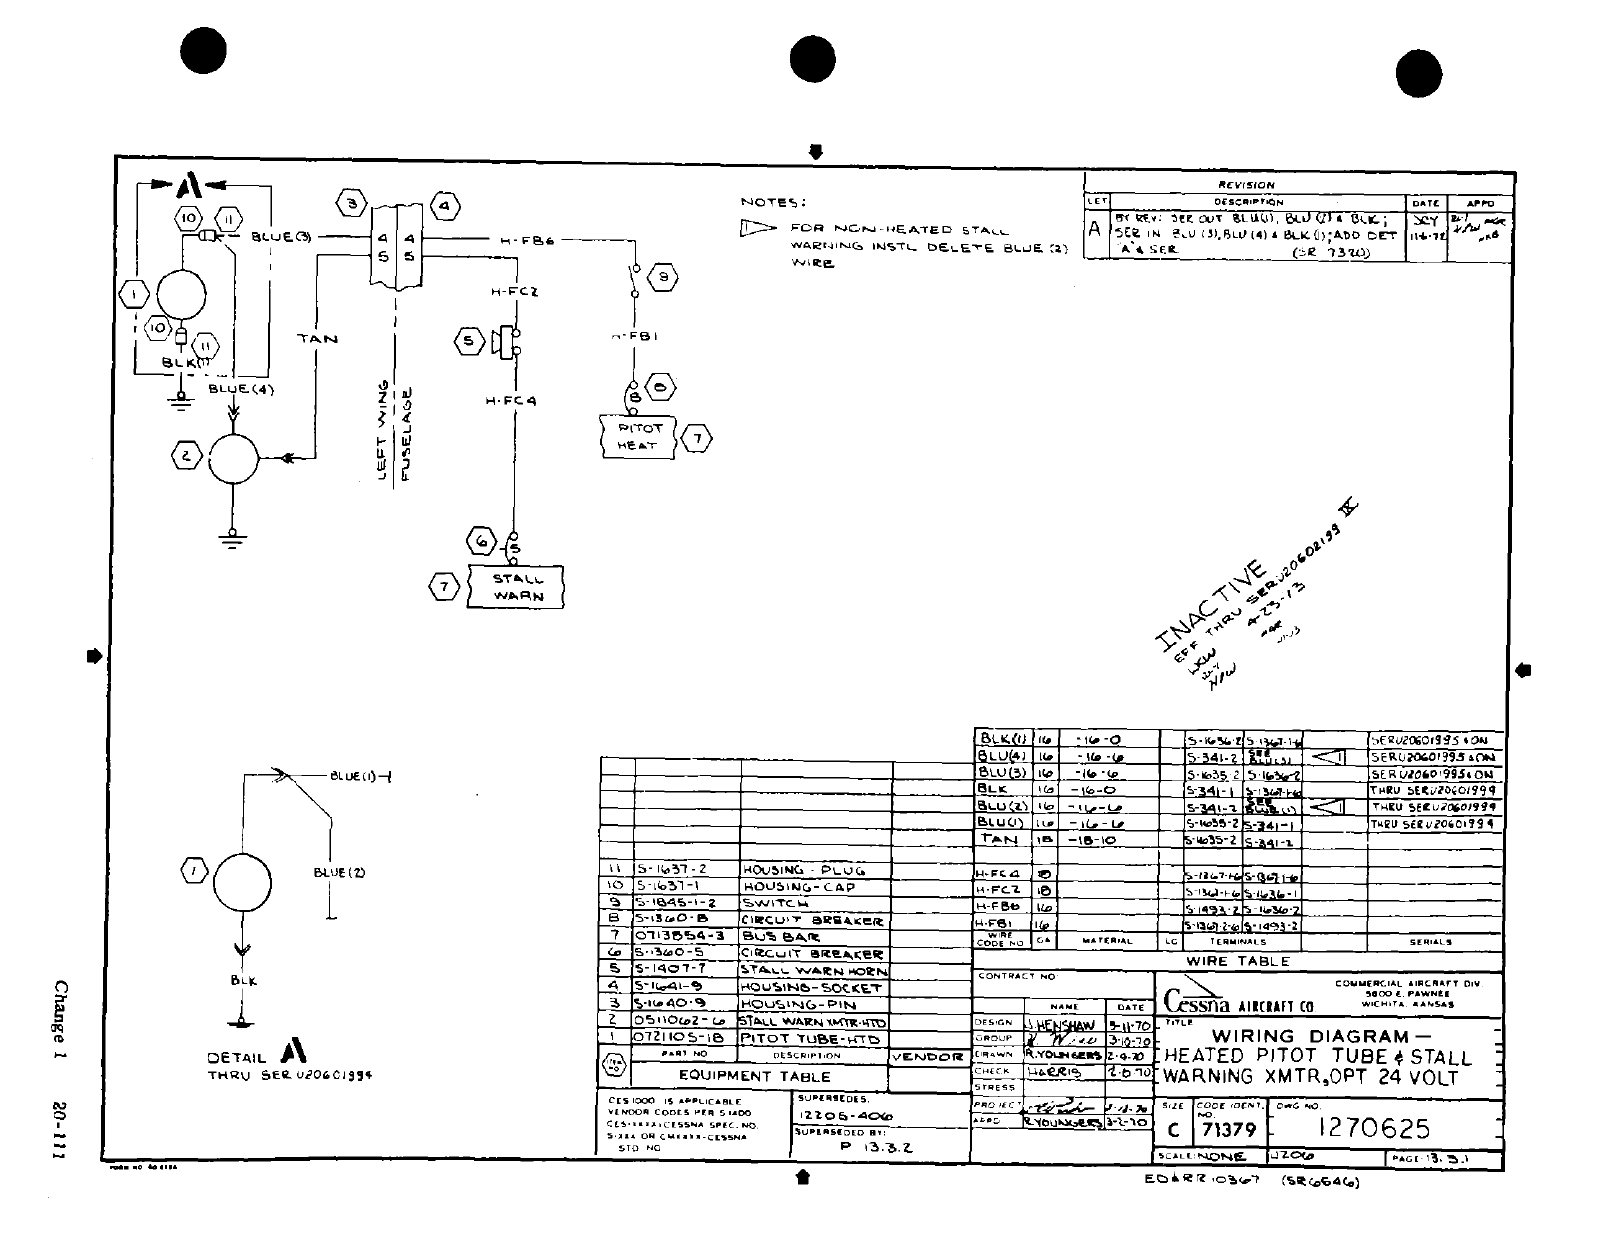 A
10
11
BLUE(3)
3
4
4
4
5
5
H-FB6
H-FC2
9
1
10
11
BLK(1)
TAN
5
H-FB1
BLUE(4)
LEFT WING
FUSELAGE
H-FC4
8
8
PITOT
HEAT
7
2
6
5
7
STALL
WARN
NOTES:
1
FOR NON-HEATED STALL
WARNING INSTL DELETE BLUE (2)
WIRE
REVISION
LET
DESCRIPTION
DATE
APPD
A
BY REV: SER OUT BLU(1), BLU (2) & BLK;
SER IN BLU (3), BLU (4) & BLK (1); ADD DET
"A" & SER (SR 7320)
11-6-72
INACTIVE
EFF THRU SER U20602199
4-23-73
BLUE(1)
1
BLUE(2)
BLK
DETAIL A
THRU SER U20601994
BLK(1) 16 -16-0 S-1636-2 S-1367-1-6 SER U20601995 & ON
BLU(4) 16 -16-6 S-341-2 SEE BLU(3) 1 SER U20601995 & ON
BLU(3) 16 -16-6 S-1635-2 S-1636-2 SER U20601995 & ON
BLK 16 -16-0 S-341-1 S-1367-1-6 THRU SER U20601994
BLU(2) 16 -16-6 S-341-2 SEE BLUE(1) 1 THRU SER U20601994
BLU(1) 16 -16-6 S-1635-2 S-341-1 THRU SER U20601994
TAN 18 -18-10 S-1635-2 S-341-2
H-FC4 18 S-1367-1-6 S-1367-1-6
H-FC2 18 S-1367-1-6 S-1636-1
H-FB6 16 S-1493-2 S-1636-2
H-FB1 16 S-1367-2-6 S-1493-2
WIRE CODE NO GA MATERIAL LG TERMINALS SERIALS
WIRE TABLE
11 S-1637-2 HOUSING-PLUG
10 S-1637-1 HOUSING-CAP
9 S-1845-1-2 SWITCH
8 S-1360-8 CIRCUIT BREAKER
7 0713854-3 BUS BAR
6 S-1360-5 CIRCUIT BREAKER
5 S-1407-7 STALL WARN HORN
4 S-1641-9 HOUSING-SOCKET
3 S-1640-9 HOUSING-PIN
2 0511062-6 STALL WARN XMTR-HTD
1 0721105-18 PITOT TUBE-HTD
ITEM NO PART NO DESCRIPTION VENDOR
EQUIPMENT TABLE
CES 1000 IS APPLICABLE
VENDOR CODES PER S-1400
CES-XXXX=CESSNA SPEC. NO.
S-XXX OR CMXXXX-CESSNA
STD NO
SUPERSEDES:
12205-406
SUPERSEDED BY:
P 13.3.2
CONTRACT NO
NAME DATE
DESIGN J. HENSHAW 3-11-70
GROUP 3-10-70
DRAWN R. YOUNGERS 2-9-70
CHECK HARRIS
STRESS
PROJECT
APPD R. YOUNGERS 3-2-70
Cessna AIRCRAFT CO
COMMERCIAL AIRCRAFT DIV.
5800 E. PAWNEE
WICHITA, KANSAS
TITLE
WIRING DIAGRAM-
HEATED PITOT TUBE & STALL
WARNING XMTR, OPT 24 VOLT
SIZE
C
CODE IDENT. NO.
71379
DWG NO.
1270625
SCALE: NONE
U206
PAGE: 13.3.1
EO & RR 10367 (SR6546)
Change 1 20-111